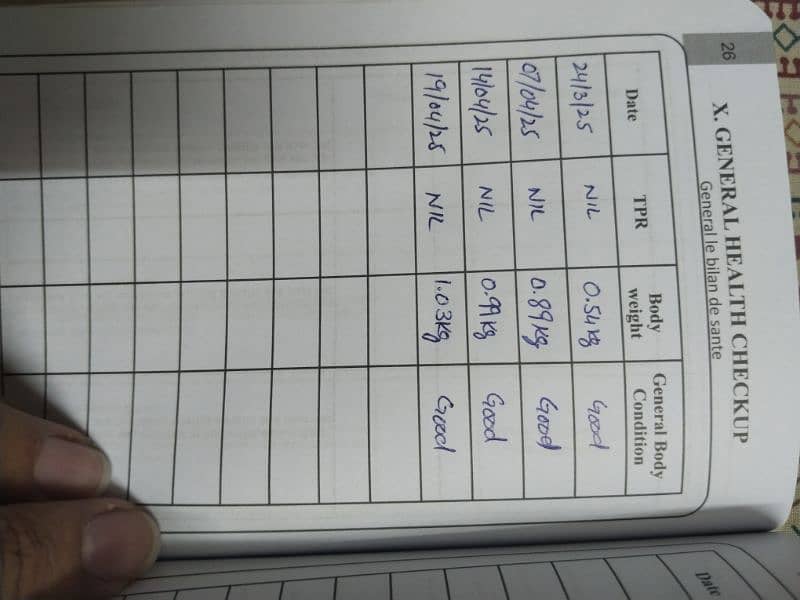 26
X. GENERAL HEALTH CHECKUP
General le bilan de sante
Date TPR Body weight General Body Condition
24/3/25 NIL 0.54 kg Good
07/04/25 NIL 0.89 kg Good
14/04/25 NIL 0.99 kg Good
19/04/25 NIL 1.03 kg Good
Date